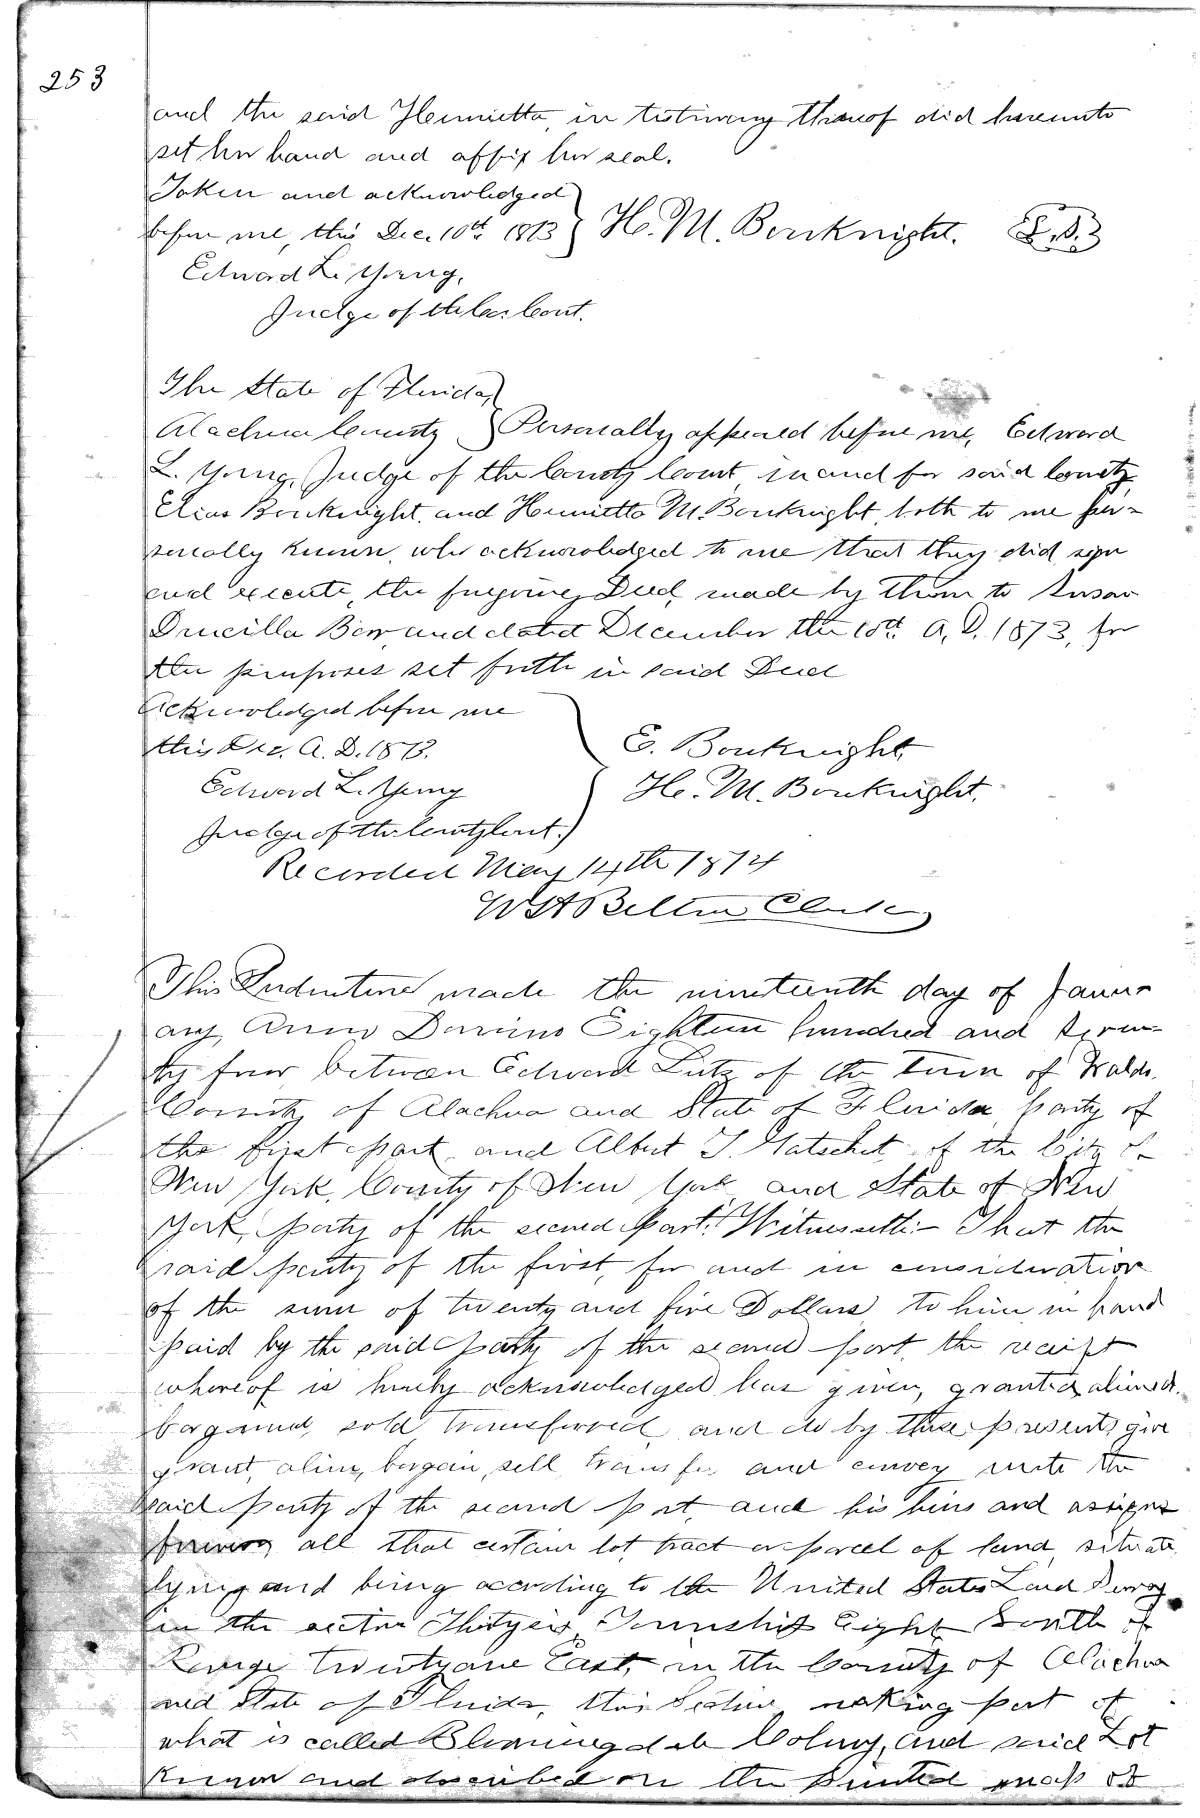 253
and the said Henrietta, in testimony thereof did hereunto
set her hand and affix her seal.
Taken and acknowledged
before me, this Dec. 10th 1873 } H. M. Bouknight. (L.S.)
Edward L. Young,
Judge of the Co. Court.
The State of Florida,
Alachua County } Personally appeared before me, Edward
L. Young, Judge of the County Court, in and for said County,
Elias Bouknight, and Henrietta M. Bouknight, both to me per-
sonally known, who acknowledged to me that they did sign
and execute, the foregoing Deed, made by them to Susan
Drucilla Barr, and dated December the 10th A.D. 1873, for
the purposes set forth in said Deed
Acknowledged before me
this Dec. A.D. 1873. E. Bouknight,
Edward L. Young H. M. Bouknight.
Judge of the County Court.
Recorded May 14th 1874
W H Belton Clerk
This Indenture made the nineteenth day of Janu-
ary, Anno Domino Eighteen hundred and seven-
ty four between Edward Lutz of the Town of Waldo,
County of Alachua and State of Florida, party of
the first part, and Albert S. Gatschet, of the City of
New York, County of New York, and State of New
York, party of the second part: Witnesseth:- That the
said party of the first, for and in consideration
of the sum of twenty and five Dollars, to him in hand
paid by the said party of the second part, the receipt
whereof is hereby acknowledged has given, granted, aliened,
bargained, sold, transferred, and do by these presents give
grant, alien, bargain, sell, transfer and convey unto the
said party of the second part, and his heirs and assigns
forever, all that certain lot, tract or parcel of land, situate
lying and being according to the United States Land Survey
in the section Thirtysix, Township Eight South of
Range twentyone East, in the County of Alachua
and State of Florida, this Section making part of
what is called Bloomingdale Colony, and said Lot
known and described on the printed map of